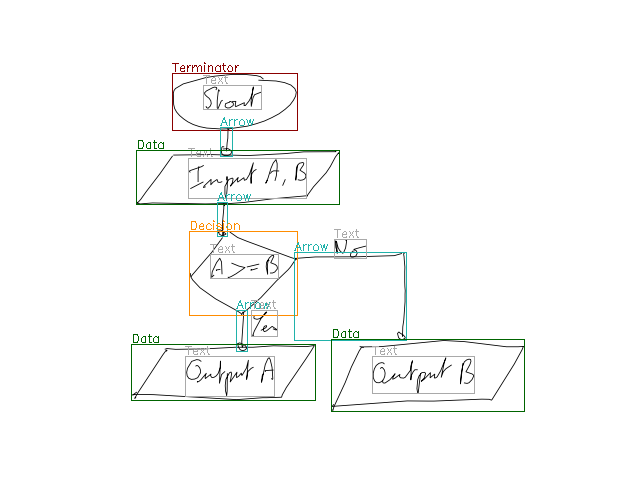 Terminator
Text
Start
Arrow
Data
Text
Input A, B
Arrow
Decision
Text
A >= B
Arrow
Text
No
Arrow
Text
Yes
Data
Text
Output A
Data
Text
Output B